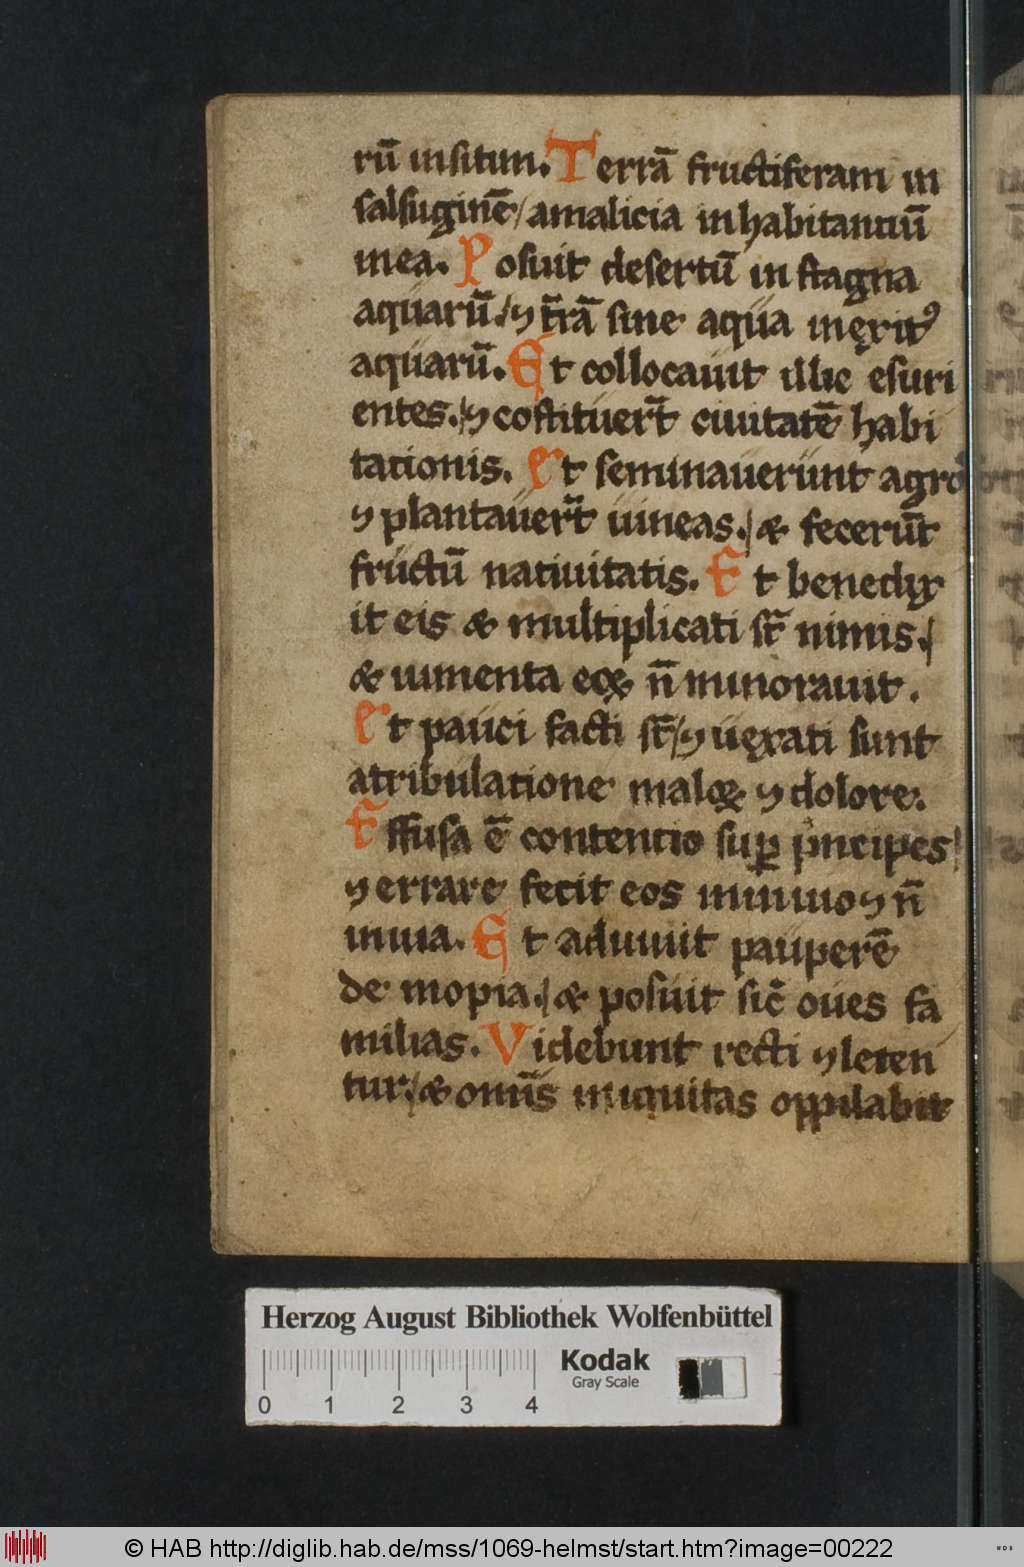 rū in sitim. Terrā fructiferam in
salsuginē / amalicia inhabitantiū
in ea. Posuit desertū in stagna
aquarū. / ⁊ t̄rā sine aqua in exitꝰ
aquarū. Et collocauit illic esuri
entes. / ⁊ costituer̄t ciuitatē habi
tationis. Et seminauerunt agro
⁊ plantauer̄t uineas. / & fecerūt
fructū natiuitatis. Et benedix
it eis & multiplicati st̄ nimis. /
& iumenta eoꝝ n̄ minorauit.
Et pauci facti st̄ / ⁊ uexati sunt
atribulatione maloꝝ ⁊ dolore.
Effusa ē contentio suꝑ pͥncipes /
⁊ errare fecit eos in inuio ⁊ n̄
in uia. Et adiuuit pauperē
de inopia. / & posuit sic̄ oues fa
milias. Videbunt recti ⁊ leten
tur / & om̄is iniquitas oppilabit
Herzog August Bibliothek Wolfenbüttel
Kodak
Gray Scale
0 1 2 3 4
© HAB http://diglib.hab.de/mss/1069-helmst/start.htm?image=00222